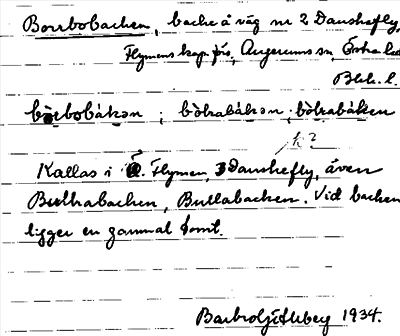 Borrbobacken, backe å väg nr 2 Danshefly,
Flymens kap. fös, Augerums sn, Östra hd
Blek. l.
bòrbobàkən ; bòlrabàkən ; bòlrabàkən
k?
Kallas i Ö. Flymen, Danshefly, även
Bullrabacken, Bullabacken. Vid backen
ligger en gammal tomt.
1934.